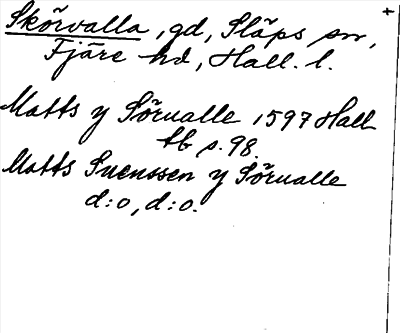 Skörvalla, gd, Släps sn,
Fjäre hd, Hall. l.
Matts y Sörualle 1597 Hall
tb s. 98.
Matts Suenssen y Sörualle
d:o, d:o.